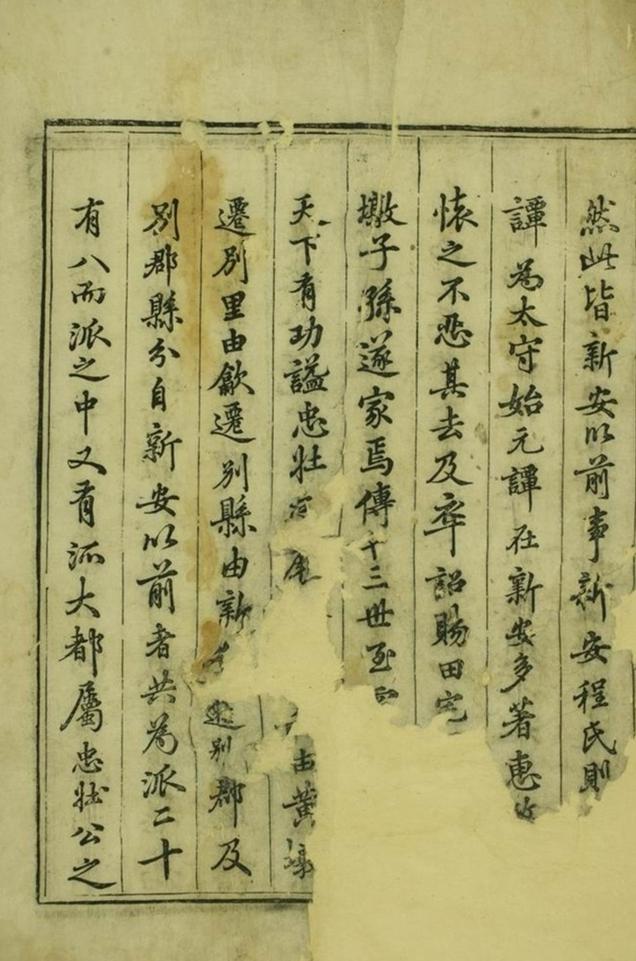 然此皆新安以前事新安程氏則
譚為太守始元譚在新安多著惠
懐之不忍其去及卒詔賜田宅
墩子孫遂家焉傳十三世至
天下有功謚忠壮 由黄墩
遷别里由歙遷别縣由新 遷别郡及
别郡縣分自新安以前者共為派二十
有八而派之中又有派大都屬忠壮公之